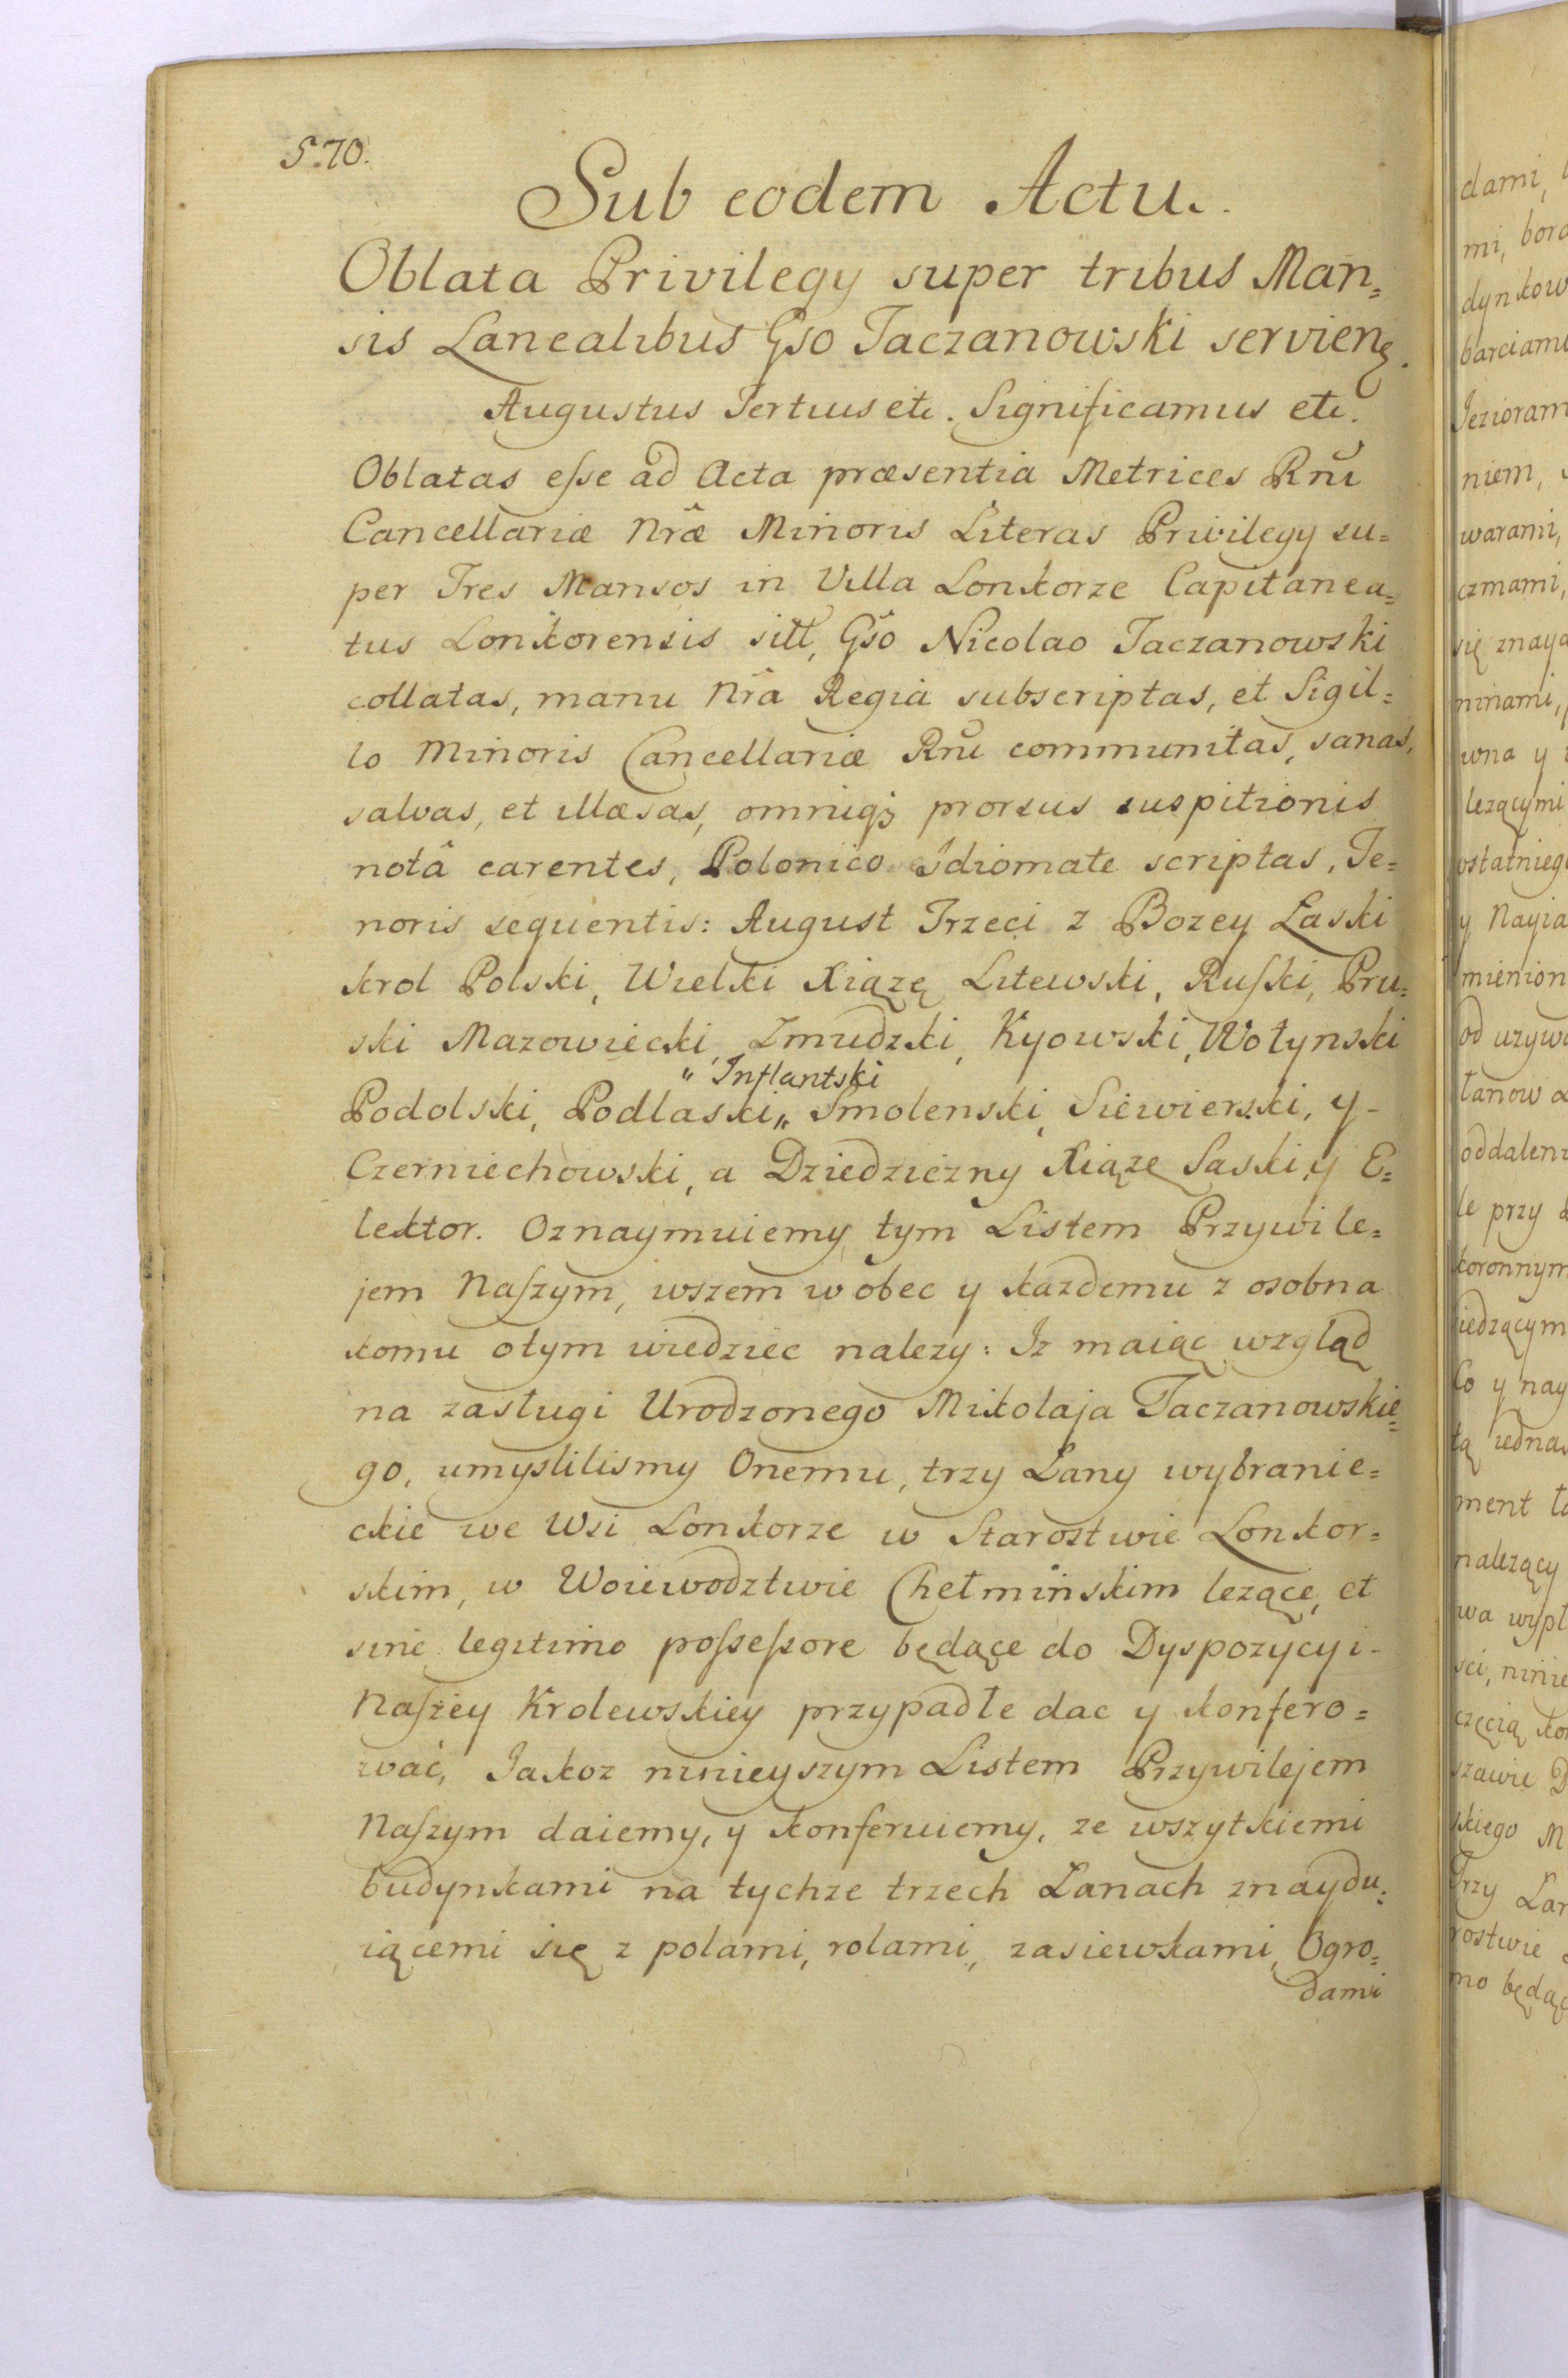 570.
Sub eodem Actu.
Oblata Privilegy super tribus Man=
sis Lanealibus Gso Taczanowski servieng.
Augustus Tertius etc. Significamus etc.
Oblatas eſse ad Acta præsentia Metrices Rnũ
Cancellariæ Nræ̃ Minoris Literas Privilegy su=
per Tres Mansos in Villa Lonkorze Capitanea=
tus Lonkorensis sitt, Gso Nicolao Taczanowski
collatas, manu Nrã Regia subscriptas, et Sigil=
lo Minoris Cancellariæ Rnũ communitas, sanas,
salvas, et illæsas, omniqꝫ prorsus suspitionis
notâ carentes, Polonico Idiomate scriptas, Te=
noris sequentis: August Trzeci z Bozey Łaski
krol Polski, Wielki Xiązę Litewski, Ruſki, Pru=
ski Mazowiecki, Zmudzki, Kyowski, Wołynski
" Inflantski
Podolski, Podlaski,, Smolenski, Siewierski, y-
Czerniechowski, a Dziedziczny Xiąze Saski, y E=
lektor. Oznaymuiemy tym Listem Przywile=
jem Naſzym, wszem w obec y kazdemu z osobna
komu otym wiedziec nalezy: Iz maiąc wzgląd
na zasługi Urodzonego Mikolaja Taczanowskie=
go, umyslilismy Onemu, trzy Łany wybranie=
ckie we Wsi Lonkorze w Starostwie Lonkor=
skim, w Woiewodztwie Chełmińskim lezące, et
sine legitimo poſseſsore będące do Dyspozycyi-
Naſzey Krolewskiey przypadłe dac y konfero=
wać, Jakoz ninieyszym Listem Przywilejem
Naſzym daiemy, y konferuiemy, ze wszytkiemi
budynkami na tychze trzech Łanach znaydu=
iącemi się z polami, rolami, zasiewkami, Ogro=
dami
dami,
mi,
dynkow
barciami
Jezioram
niem,
warami,
czmami,
się znayd
ninami,
wna y
lezącymi
ostatnieg
y Nayia
mienion
od uzywa
łanow
oddaleni
le przy
koronnym
iedzącym
Co y nay
tą iedna
ment
nalezący
wa wypł
sci, ninie
częcią
szawie
skiego M
Trzy Łan
rostwie
mo będąc